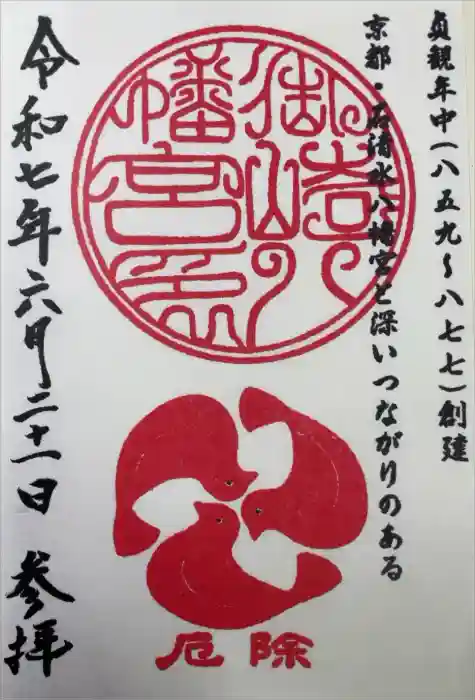 貞観年中(八五九～八七七)創建
京都・石清水八幡宮と深いつながりのある
御崎八
幡宮印
厄除
令和七年六月二十一日 参拝